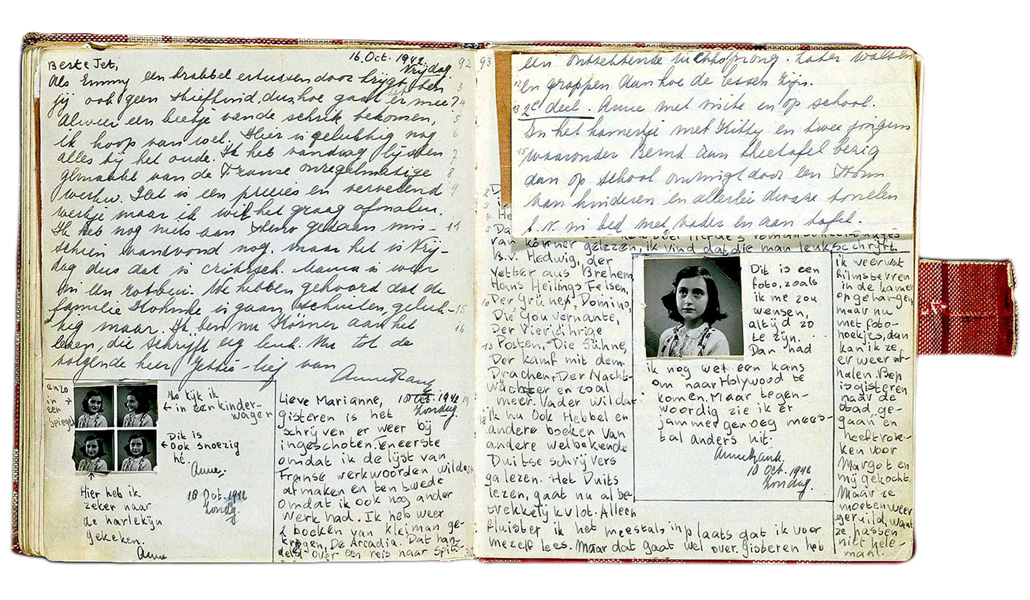 16. Oct. 1942.
Vrijdag
92
Beste Jet,
Als Emmy een krabbel ertussen door krijgt, ben
jij ook geen stiefkind, dus hoe gaat er mee?
Alweer een beetje van de schrik bekomen,
ik hoop van wel. Hier is gelukkig nog
alles bij het oude. Ik heb vandaag lijsten
gemaakt van de Franse onregelmatige
werkw. Het is een precies en vervelend
werkje maar ik wil het graag afmaken.
Ik heb nog niets aan Steno gedaan mis-
schien vanavond nog, maar het is Vrij-
dag dus dat is critisch. Mama is weer
in een rotbui. We hebben gehoord dat de
familie is gaan schuilen, geluk-
kig maar. Ik ben nu Körner aan het
lezen, die schrijft erg leuk. Nu tot de
volgende keer Jettie-lief van
Anne Frank
en zo
in
een
spiegel
Zo kijk ik
in een kinder-
wagen
Dit is
ook snoezig
hé.
Anne.
Hier heb ik
zeker naar
de harlekijn
gekeken.
Anne
18 Oct. 1942
Zondag.
18 Oct. 1942
Zondag.
Lieve Marianne,
gisteren is het
schrijven er weer bij
ingeschoten, teneerste
omdat ik de lijst van
Franse werkwoorden wilde
afmaken en ten twede
omdat ik ook nog ander
werk had. Ik heb weer
2 boeken van Kleiman ge-
kregen, De Arcadia. Dat han-
delt over een reis naar Spits-
93
een ontzettende luchtsprong. Later walsen
en grappen aan hoe de lessen zijn.
2e deel. Anne met witte en op school.
In het kamertje met Kitty en twee jongens
waaronder Bernd aan theetafel bezig
dan op school omringd door een
van kinderen en allerlei dwaze tonelen
b.v. in bed met vader en aan tafel.
van Körner gelezen, ik vind dat die man leuk schrijft.
B.v. Hedwig, der
Vetter aus Bremen,
Hans Heilings Felsen,
Der Grüne Domino,
Die Gouvernante,
Der Vierjährige
Posten, Die Sühne,
Der Kampf mit dem
Drachen, Der Nacht-
wächter en zoal
meer. Vader wil dat
ik nu ook Hebbel en
andere boeken van
andere welbekende
Duitse schrijvers
ga lezen. Het Duits
lezen, gaat nu al be-
trekkelijk vlot. Alleen
fluister ik het meestal inplaats dat ik voor
mezelf lees. Maar dat gaat wel over. gisteren heb
Dit is een
foto, zoals
ik me zou
wensen,
altijd zo
te zijn.
Dan had
ik nog wel een kans
om naar Holywood te
komen. Maar tegen-
woordig zie ik er
jammer genoeg mees-
tal anders uit.
Annefrank.
18 Oct. 1942
Zondag.
ik weer wat
filmsterren
in de kamer
opgehangen,
maar nu
met foto-
hoekjes, dan
kan ik ze
er weer af-
halen. Bep
is gisteren
naar de
stad ge-
gaan en
heeft rok-
ken voor
Margot en
mij gekocht.
Maar ze
moeten weer
geruild, want
ze passen
niet hele-
maal.